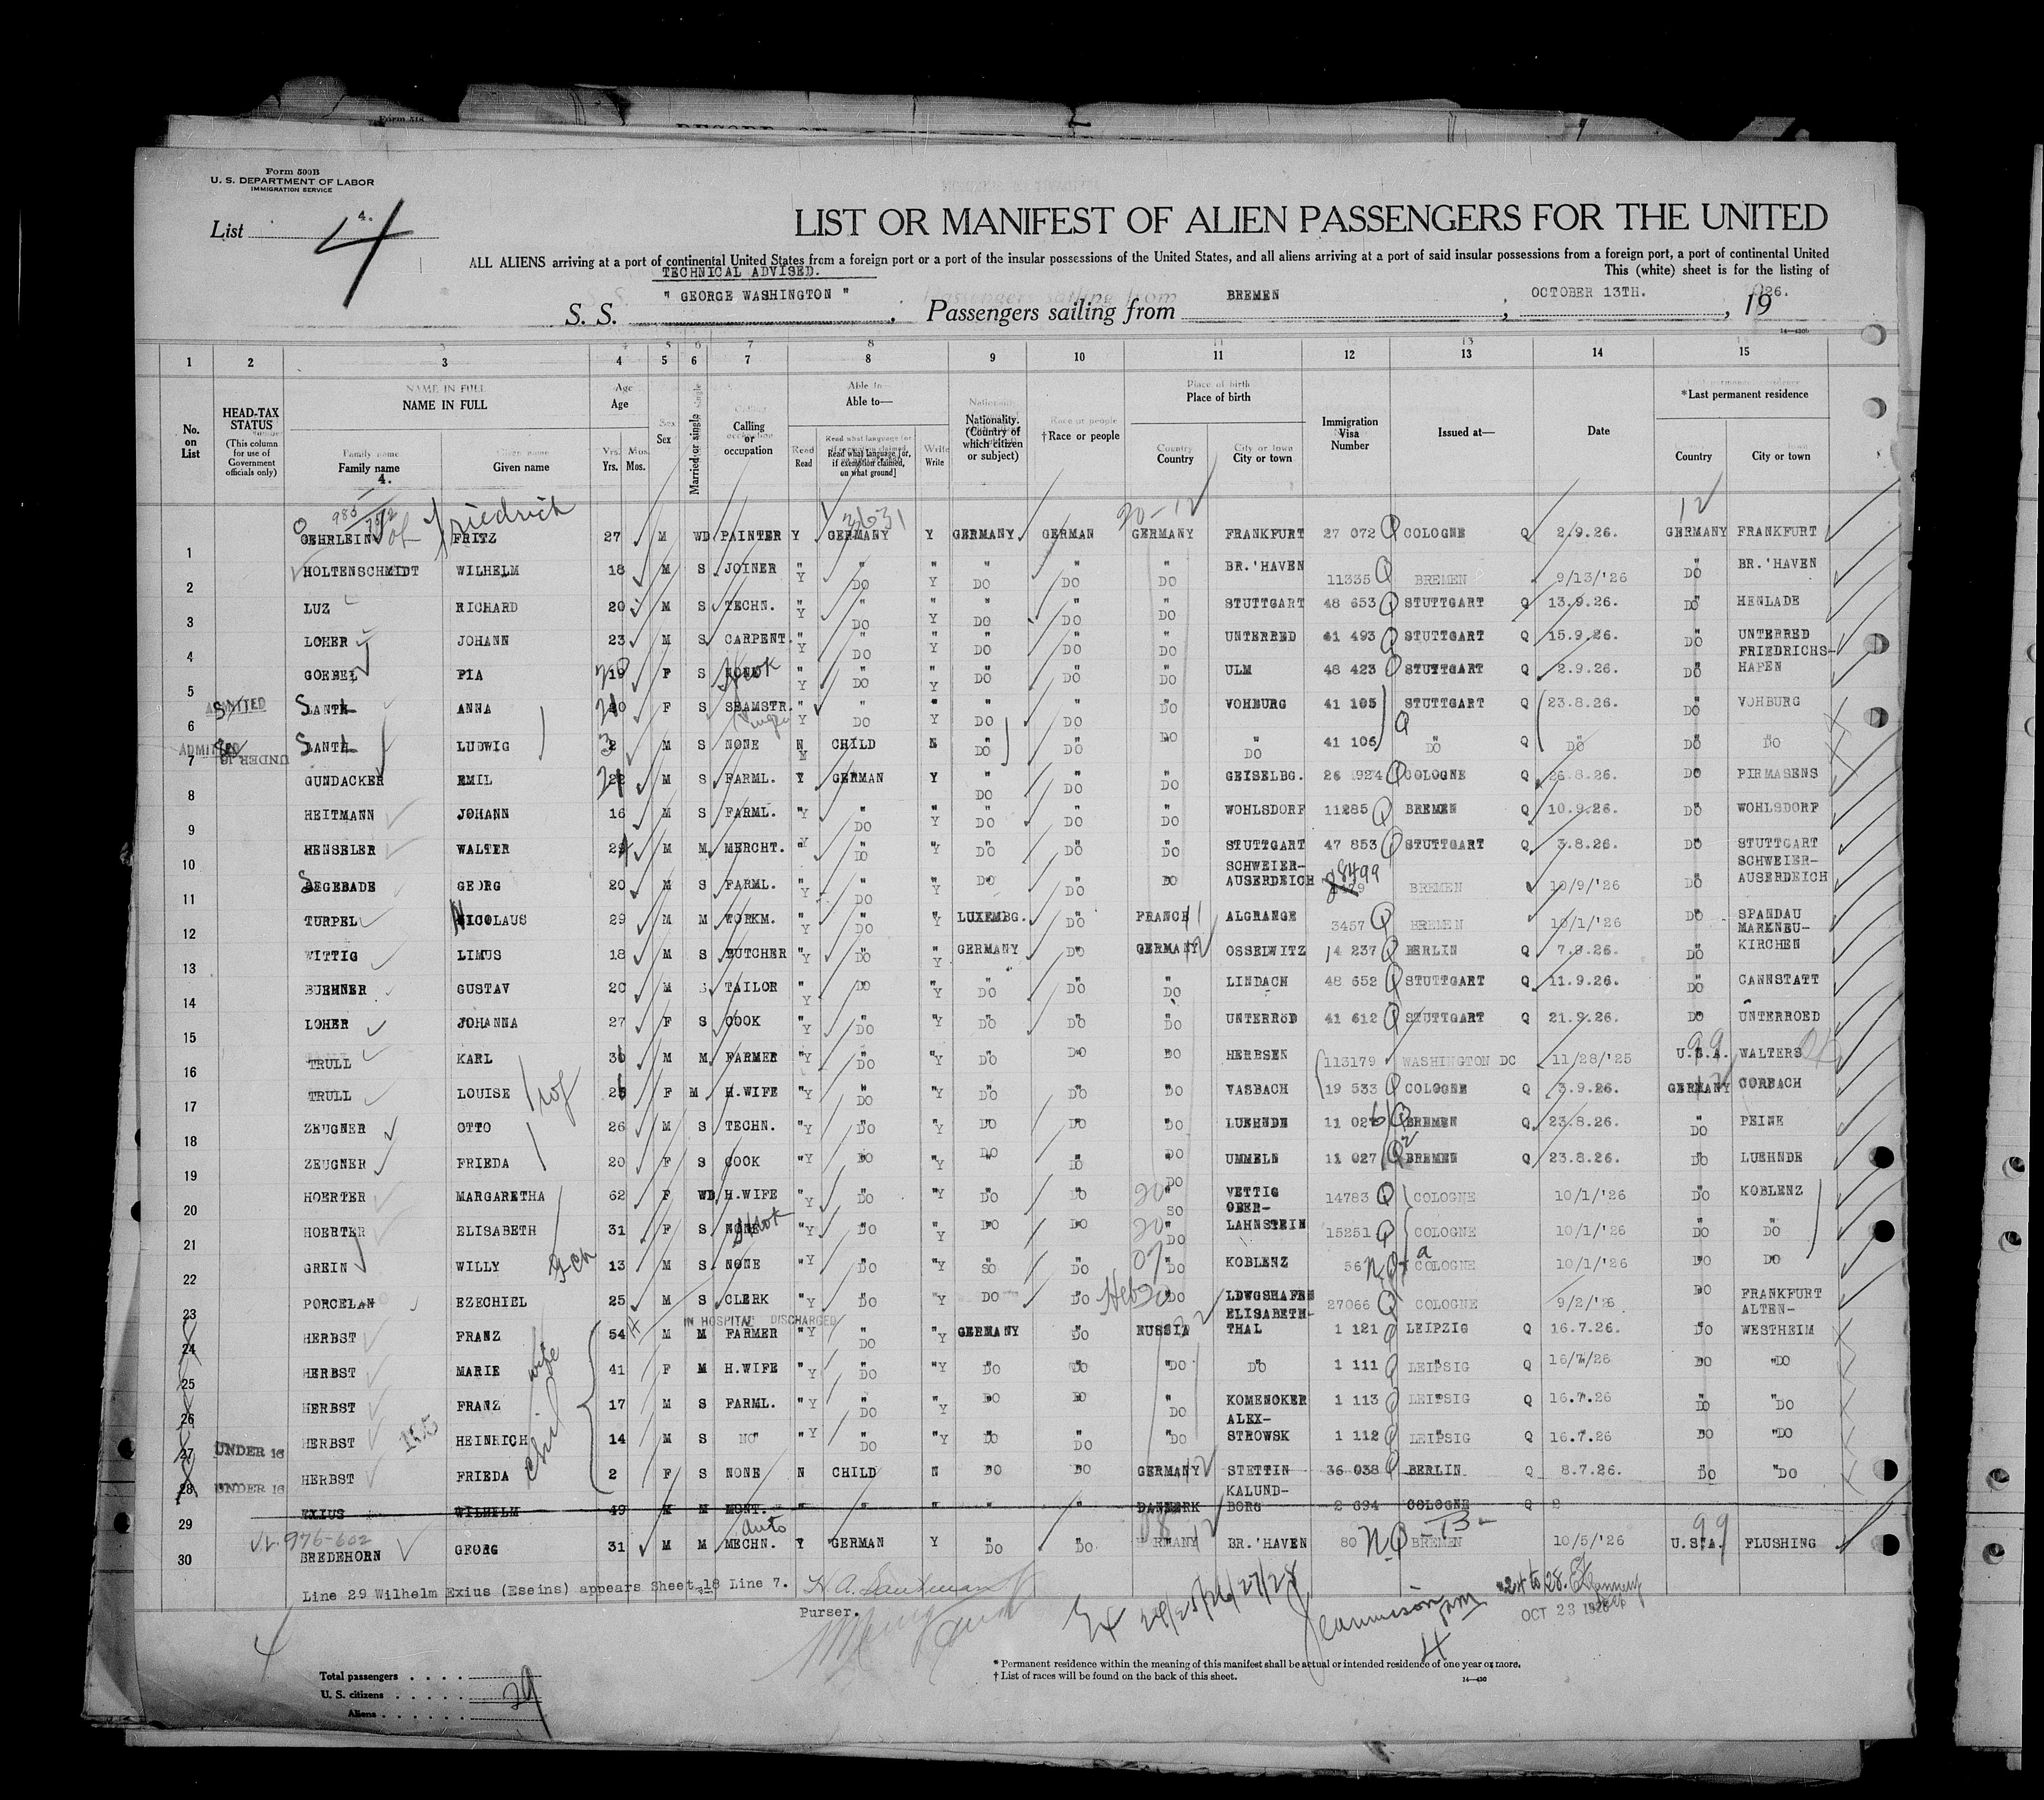 Form 500B
U. S. DEPARTMENT OF LABOR
IMMIGRATION SERVICE
List 4.
4
LIST OR MANIFEST OF ALIEN PASSENGERS FOR THE UNITED
ALL ALIENS arriving at a port of continental United States from a foreign port or a port of the insular possessions of the United States, and all aliens arriving at a port of said insular possessions from a foreign port, a port of continental United
TECHNICAL ADVISED. This (white) sheet is for the listing of
S. S. " GEORGE WASHINGTON ", Passengers sailing from BREMEN, OCTOBER 13TH., 1926.
1 2 3 4 5 6 7 8 9 10 11 12 13 14 15
No. on List
HEAD-TAX STATUS (This column for use of Government officials only)
NAME IN FULL Family name Given name
Age Yrs. Mos.
Sex
Married or single
Calling or occupation
Able to— Read Read what language [or, if exemption claimed, on what ground] Write
Nationality. (Country of which citizen or subject)
†Race or people
Place of birth Country City or town
Immigration Visa Number
Issued at—
Date
*Last permanent residence Country City or town
4.
Friedrich
1 GEHRLEIN FRITZ 27 M WD PAINTER Y GERMANY Y GERMANY GERMAN GERMANY FRANKFURT 27 072 COLOGNE Q 2.9.26. GERMANY FRANKFURT
2 HOLTENSCHMIDT WILHELM 18 M S JOINER " Y " DO " Y " DO " DO " DO BR.'HAVEN 11335 BREMEN 9/13/'26 " DO BR.'HAVEN
3 LUZ RICHARD 20 M S TECHN. " Y " DO " Y " DO " DO " DO STUTTGART 48 653 STUTTGART Q 13.9.26. " DO HENLADE
4 LOHER JOHANN 23 M S CARPENT. " Y " DO " Y " DO " DO " DO UNTERRED 41 493 STUTTGART Q 15.9.26. " DO UNTERRED
5 GOEBEL PIA 19 F S NONE " Y " DO " Y " DO " DO " DO ULM 48 423 STUTTGART Q 2.9.26. " DO FRIEDRICHS-HAFEN
6 ADMITTED ANNA 20 F S SEAMSTR. " Y " DO " Y " DO " DO " DO VOHBURG 41 105 STUTTGART 23.8.26. " DO VOHBURG
7 ADMITTED UNDER 16 LUDWIG 2 M S NONE N CHILD N " DO " DO " DO " DO 41 106 " DO Q " DO " DO " DO
8 GUNDACKER EMIL 22 M S FARML. Y GERMAN Y " DO " DO " DO GEISELBG. 26 1924 COLOGNE Q 26.8.26. " DO PIRMASENS
9 HEITMANN JOHANN 16 M S FARML. "Y " DO " Y " DO " DO " DO WOHLSDORF 11285 BREMEN Q 10.9.26. " DO WOHLSDORF
10 HENSELER WALTER M M MERCHT. "Y " DO "Y " DO " DO " DO STUTTGART 47 853 STUTTGART Q 3.8.26. " DO STUTTGART
11 SEGEBADE GEORG 20 M S FARML. " Y " DO " Y " DO " DO " DO SCHWEIER-AUSERDEICH 8499 BREMEN 10/9/'26 " DO SCHWEIER-AUSERDEICH
12 TURPEL NICOLAUS 29 M M WORKM. " Y " DO " Y LUXEMBG. " DO FRANCE ALGRANGE 3457 BREMEN 10/1/'26 " DO SPANDAU
13 WITTIG LIMUS 18 M S BUTCHER "Y " DO " Y GERMANY " DO GERMANY OSSELWITZ 14 237 BERLIN Q 7.9.26. " DO MARKNEU-KIRCHEN
14 BUEHNER GUSTAV 20 M S TAILOR " Y " DO "Y " DO " DO " DO LINDACH 48 652 STUTTGART Q 11.9.26. " DO CANNSTATT
15 LOHER JOHANNA 27 F S COOK "Y " DO "Y " DO " DO " DO UNTERRÖD 41 612 STUTTGART Q 21.9.26. " DO UNTERROED
16 TRULL KARL 36 M M FARMER "Y " DO "Y " DO " DO " DO HERBSEN 113179 WASHINGTON DC 11/28/'25 U.S.A. WALTERS
17 TRULL LOUISE F M H.WIFE "Y " DO "Y " DO " DO " DO VASBACH 19 533 COLOGNE Q 3.9.26. GERMANY CORBACH
18 ZEUGNER OTTO 26 M S TECHN. "Y " DO "Y " DO " DO " DO LUEHNDE 11 026 BREMEN Q 23.8.26. " DO PEINE
19 ZEUGNER FRIEDA 20 F S COOK "Y " DO "Y " DO " DO " DO UMMELN 11 027 BREMEN Q 23.8.26. " DO LUEHNDE
20 HOERTER MARGARETHA 62 F WD H.WIFE "Y " DO "Y " DO " DO " DO VETTIG 14783 COLOGNE 10/1/'26 " DO KOBLENZ
21 HOERTER ELISABETH 31 F S NONE "Y " DO " Y " DO " DO " DO OBER-LAHNSTEIN 15251 COLOGNE 10/1/'26 " DO " DO
22 GREIN WILLY 13 M S NONE "Y " DO "Y " SO " DO " DO KOBLENZ 56 COLOGNE 10/1/'26 " DO " DO
23 PORCELAN EZECHIEL 25 M S CLERK "Y " DO "Y " DO " DO " DO LDWGSHAFEN 27066 COLOGNE 9/2/'26 " DO FRANKFURT
IN HOSPITAL DISCHARGED
24 HERBST FRANZ 54 M M FARMER "Y " DO "Y GERMANY " DO RUSSIA ELISABETH-THAL 1 121 LEIPZIG Q 16.7.26. " DO ALTEN-WESTHEIM
25 HERBST MARIE wife 41 F M H.WIFE "Y " DO "Y " DO " DO "DO " DO 1 111 LEIPSIG Q 16/7/26 " DO "DO
26 HERBST FRANZ 17 M S FARML. "Y " DO " Y " DO " DO " DO KOMENOKER 1 113 LEIPSIG Q 16.7.26 " DO "DO
27 UNDER 16 HERBST HEINRICH 14 M S NO" "Y " DO "Y " DO " DO "DO ALEX-STROWSK 1 112 LEIPSIG Q 16.7.26 " DO "DO
28 UNDER 16 HERBST FRIEDA 2 F S NONE N CHILD N " DO " DO GERMANY STETTIN 36 038 BERLIN Q 8.7.26. " DO "DO
29 EXIUS WILHELM 49 M M MONT. " " " " " DANMERK KALUND-BORG 2 694 COLOGNE Q 2
976-602
30 BREDEHORN GEORG 31 M M auto MECHN. Y GERMAN Y " DO " DO BR.'HAVEN 80 BREMEN 10/5/'26 U.S.A. FLUSHING
Line 29 Wilhelm Exius (Eseins) appears Sheet 18 Line 7.
Purser.
24/25/26/27/28
24 to 28.
OCT 23 1926
4
* Permanent residence within the meaning of this manifest shall be actual or intended residence of one year or more.
† List of races will be found on the back of this sheet.
14—430
Total passengers
U. S. citizens 29
Aliens